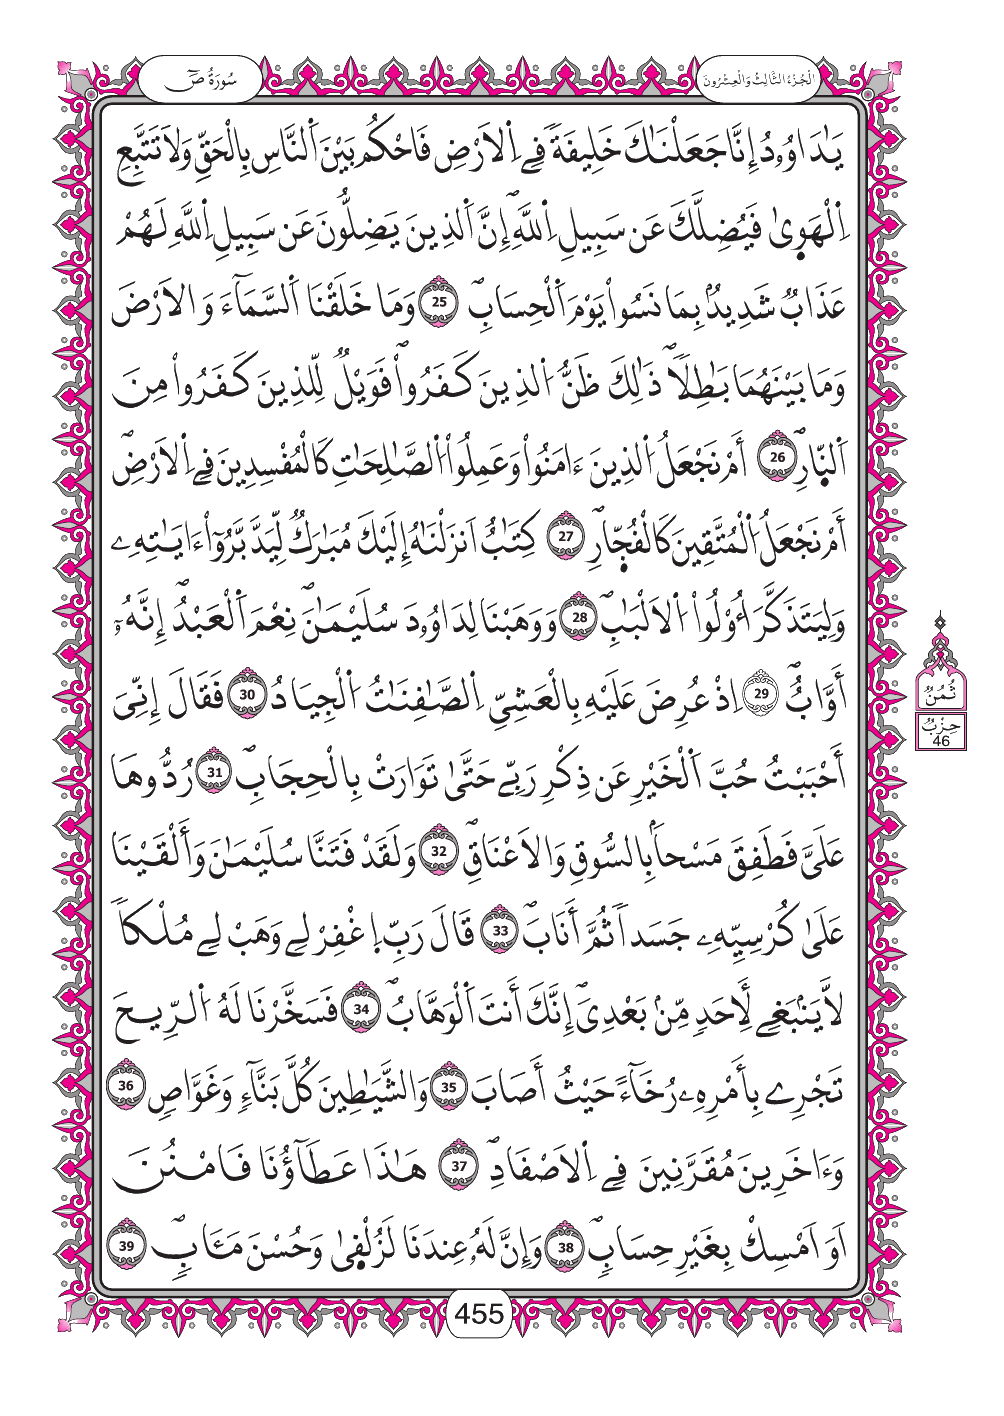 سُورَةُ صٓ
الْجُزْءُ الثَّالِثُ وَالْعِشْرُونَ
يَٰدَاوُۥدُ إِنَّا جَعَلْنَٰكَ خَلِيفَةً فِے اِلَارْضِ فَاحْكُم بَيْنَ اَلنَّاسِ بِالْحَقِّ وَلَا تَتَّبِعِ
اِلْهَوٜىٰ فَيُضِلَّكَ عَن سَبِيلِ اِللَّهِۖ إِنَّ اَلذِينَ يَضِلُّونَ عَن سَبِيلِ اِللَّهِ لَهُمْ
عَذَابٞ شَدِيدُۢ بِمَا نَسُواْ يَوْمَ اَلْحِسَابِۖ 25 وَمَا خَلَقْنَا اَلسَّمَآءَ وَالَارْضَ
وَمَا بَيْنَهُمَا بَٰطِلاٗۖ ذَٰلِكَ ظَنُّ اُلذِينَ كَفَرُواْۖ فَوَيْلٞ لِّلذِينَ كَفَرُواْ مِنَ
اَلنّٜارِۖ 26 أَمْ نَجْعَلُ اُلذِينَ ءَامَنُواْ وَعَمِلُواْ اُلصَّٰلِحَٰتِ كَالْمُفْسِدِينَ فِے اِلَارْضِۖ
أَمْ نَجْعَلُ اُلْمُتَّقِينَ كَالْفُجّٜارِۖ 27 كِتَٰبٌ اَنزَلْنَٰهُ إِلَيْكَ مُبَٰرَكٞ لِّيَدَّبَّرُوٓاْ ءَايَٰتِهِۦ
وَلِيَتَذَكَّرَ أُوْلُواْ اُلَالْبَٰبِۖ 28 وَوَهَبْنَا لِدَاوُۥدَ سُلَيْمَٰنَۖ نِعْمَ اَلْعَبْدُۖ إِنَّهُۥٓ
أَوَّابٌۖ 29 اِذْ عُرِضَ عَلَيْهِ بِالْعَشِيِّ اِلصَّٰفِنَٰتُ اُلْجِيَادُ 30 فَقَالَ إِنِّيَ
أَحْبَبْتُ حُبَّ اَلْخَيْرِ عَن ذِكْرِ رَبِّے حَتَّىٰ تَوَارَتْ بِالْحِجَابِۖ 31 رُدُّوهَا
عَلَيَّ فَطَفِقَ مَسْحاَۢ بِالسُّوقِ وَالَاعْنَاقِۖ 32 وَلَقَدْ فَتَنَّا سُلَيْمَٰنَ وَأَلْقَيْنَا
عَلَىٰ كُرْسِيِّهِۦ جَسَداٗ ثُمَّ أَنَابَۖ 33 قَالَ رَبِّ اِ۪غْفِرْ لِے وَهَبْ لِے مُلْكاٗ
لَّا يَنۢبَغِے لِأَحَدٖ مِّنۢ بَعْدِيَۖ إِنَّكَ أَنتَ اَلْوَهَّابُۖ 34 فَسَخَّرْنَا لَهُ اُلرِّيحَ
تَجْرِے بِأَمْرِهِۦ رُخَآءً حَيْثُ أَصَابَ 35 وَالشَّيَٰطِينَ كُلَّ بَنَّآءٖ وَغَوَّاصٖ 36
وَءَاخَرِينَ مُقَرَّنِينَ فِے اِلَاصْفَادِۖ 37 هَٰذَا عَطَآؤُنَا فَامْنُنَ
اَوَ اَمْسِكْ بِغَيْرِ حِسَابٖۖ 38 وَإِنَّ لَهُۥ عِندَنَا لَزُلْفٜىٰ وَحُسْنَ مَـَٔابٖۖ 39
ثُمُنٌ
حِزْبٌ
46
455